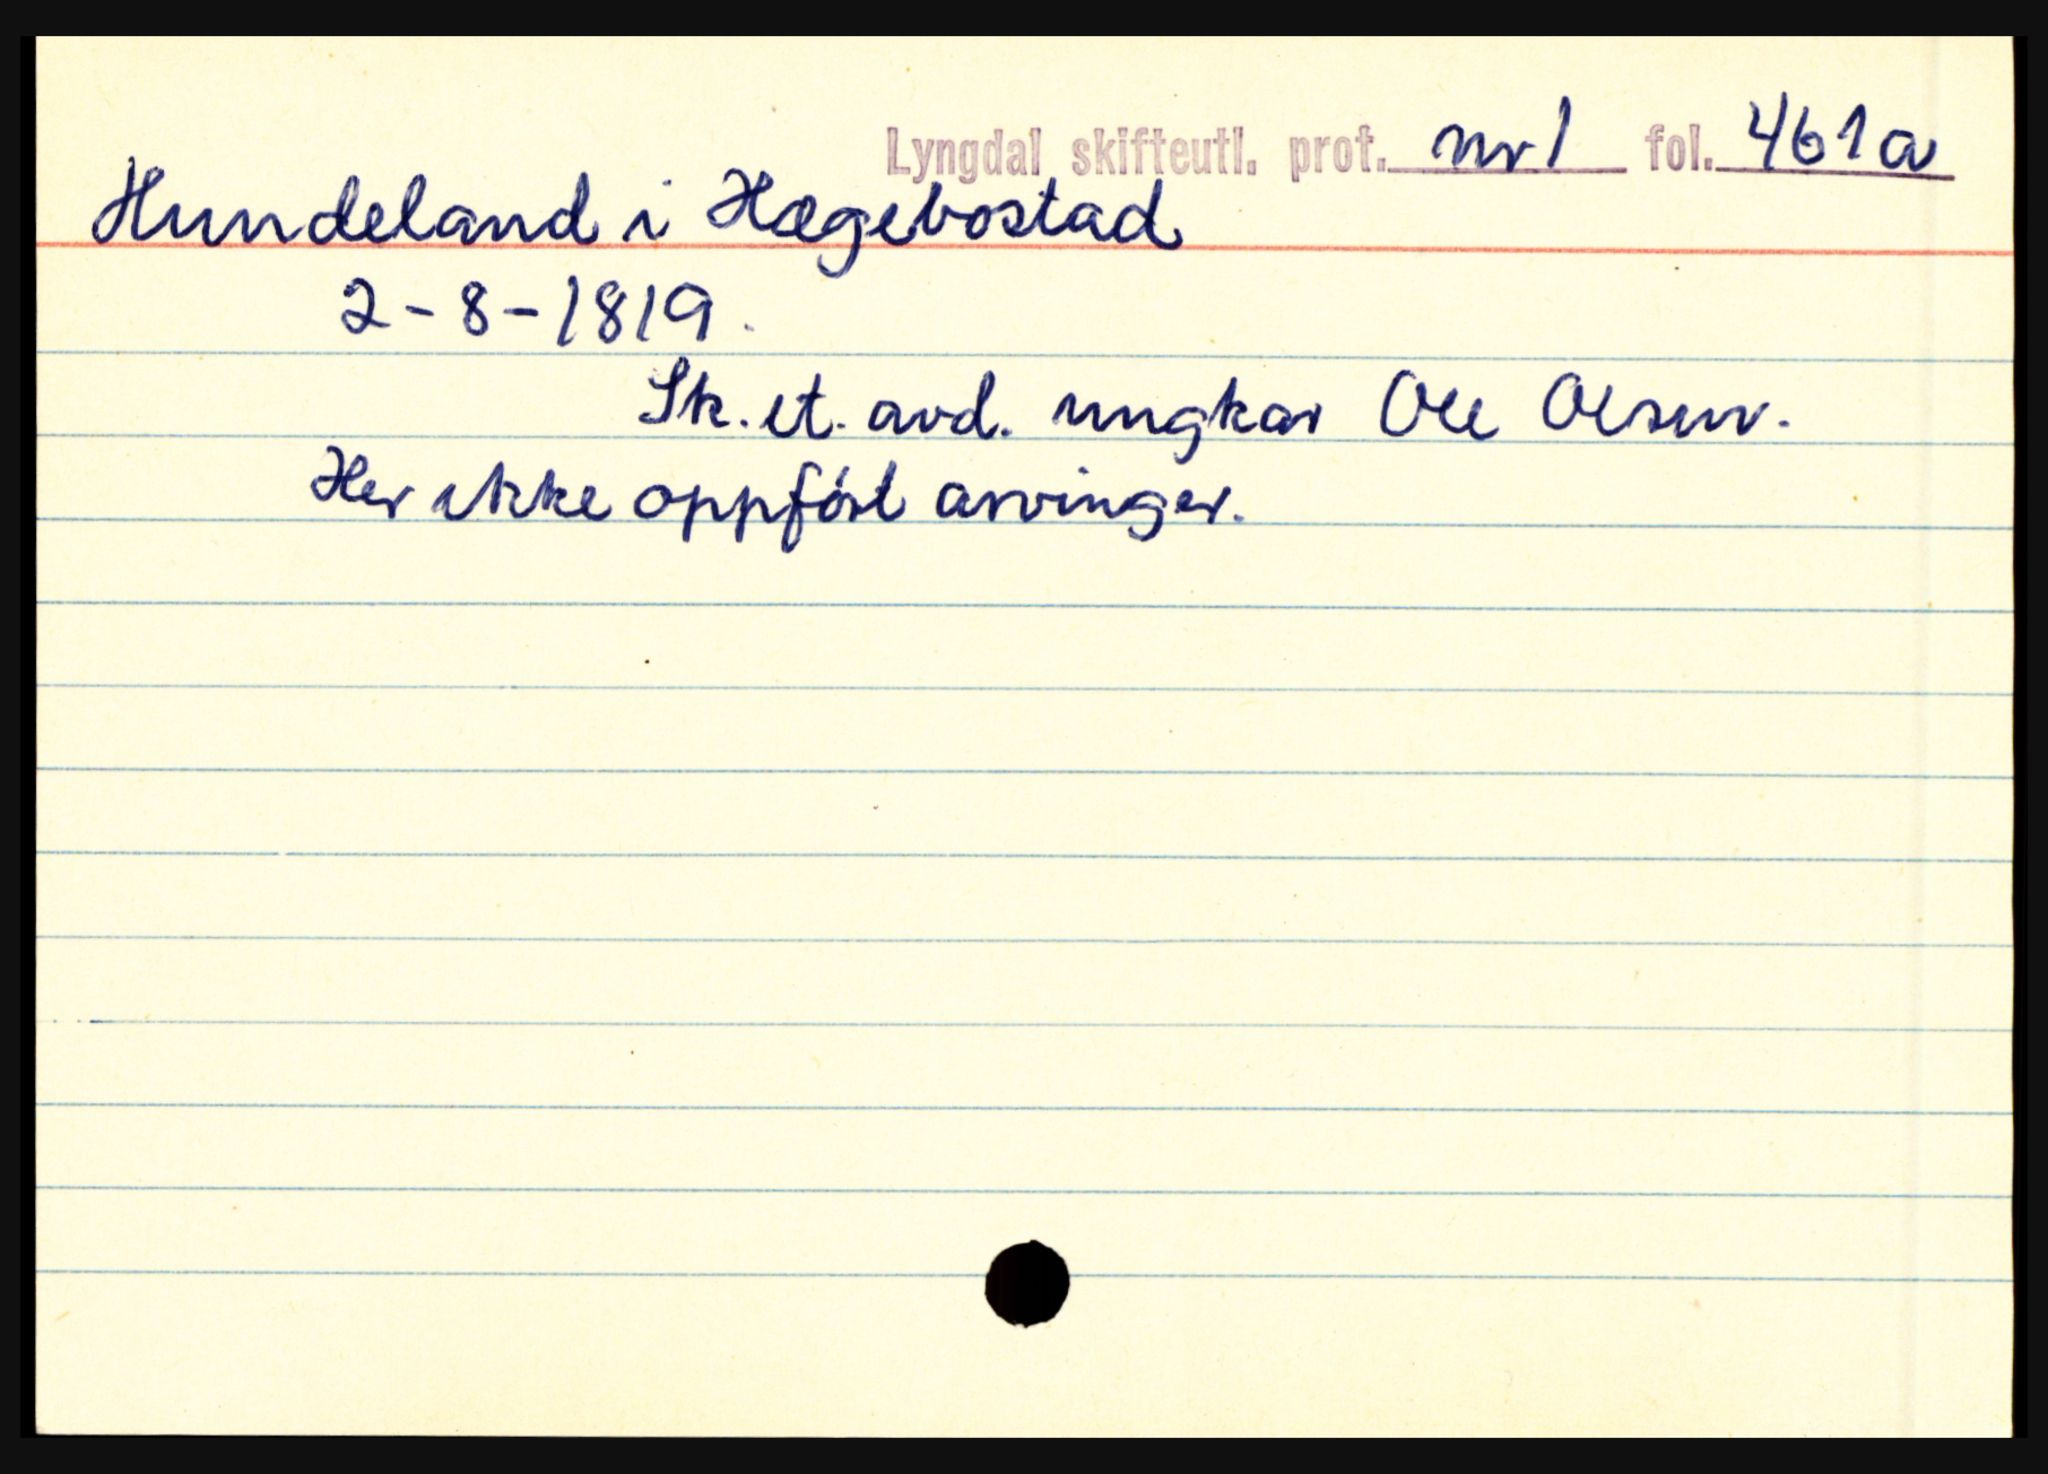 Lyngdal skifteutl. prot. nr 1 fol. 461a
Hundeland i Hægebostad
2-8-1819.
Sk. et. avd. ungkar Ole Olsen.
Her ikke oppført arvinger.